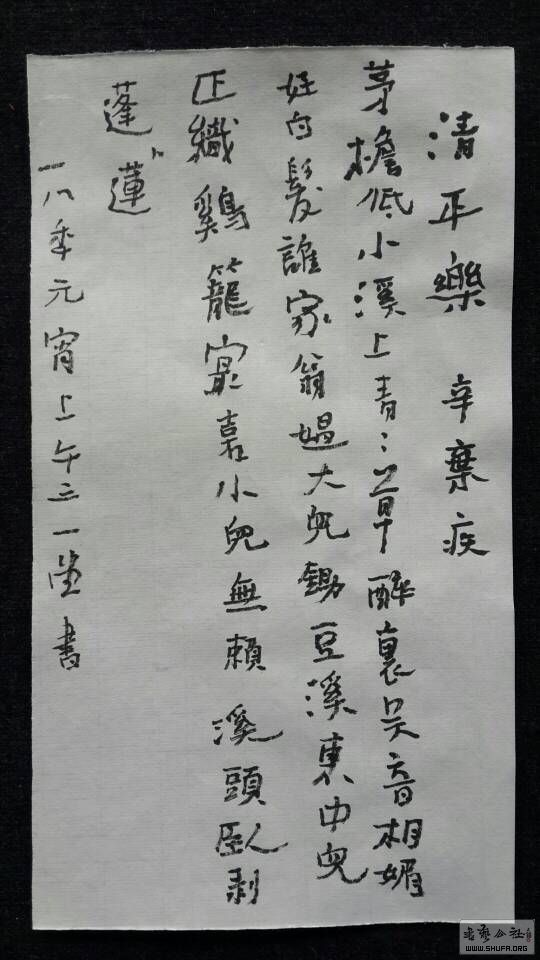 清平樂 辛棄疾
茅檐低小溪上青〻草醉裏吳音相媚
好白髮誰家翁媼大兒鋤豆溪東中兒
正織鷄籠㝡喜小兒無賴溪頭臥剥
蓬蓮
一八季元宵上午三一堂書
书艺公社
WWW.SHUFA.ORG